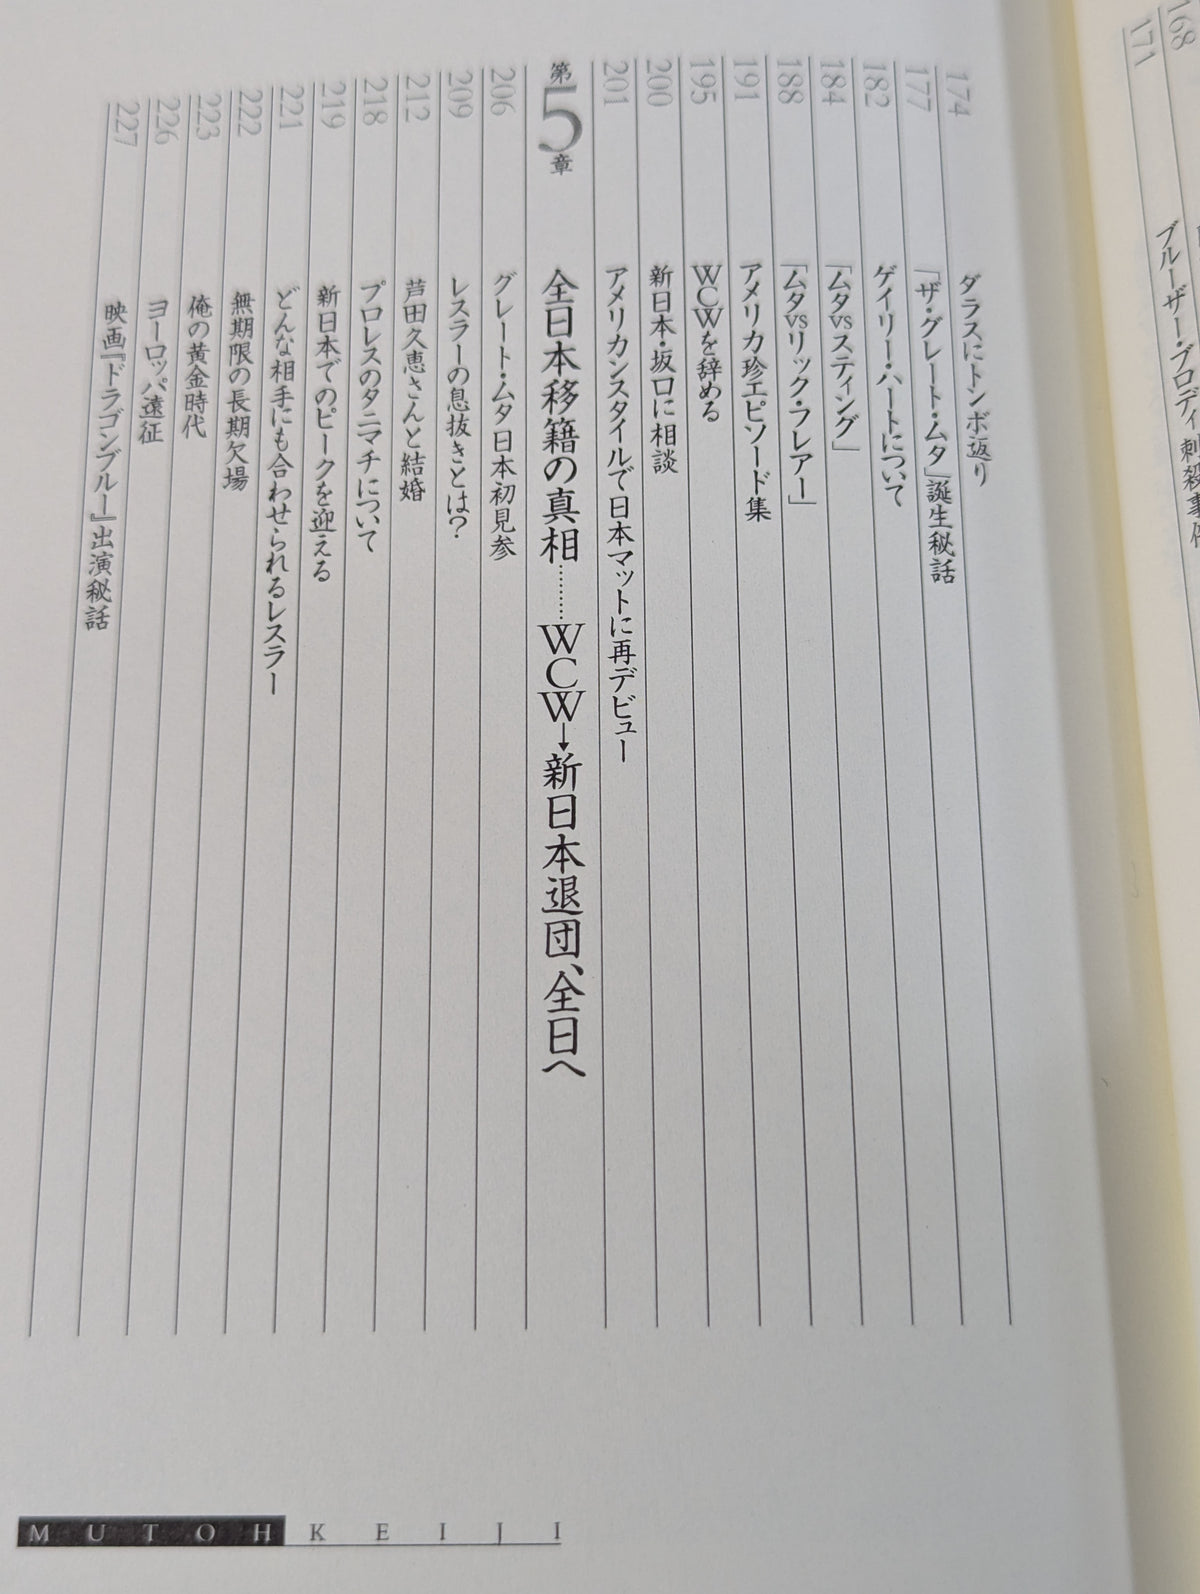 168
171
ブルーザー・ブロディ刺殺事件
174 ダラスにトンボ返り
177 「ザ・グレート・ムタ」誕生秘話
182 ゲイリー・ハートについて
184 「ムタvsスティング」
188 「ムタvsリック・フレアー」
191 アメリカ珍エピソード集
195 WCWを辞める
200 新日本・坂口に相談
201 アメリカンスタイルで日本マットに再デビュー
第5章 全日本移籍の真相………WCW→新日本退団、全日へ
206 グレート・ムタ日本初見参
209 レスラーの息抜きとは?
212 芦田久恵さんと結婚
218 プロレスのタニマチについて
219 新日本でのピークを迎える
221 どんな相手にも合わせられるレスラー
222 無期限の長期欠場
223 俺の黄金時代
226 ヨーロッパ遠征
227 映画『ドラゴンブルー』出演秘話
MUTOH KEIJI